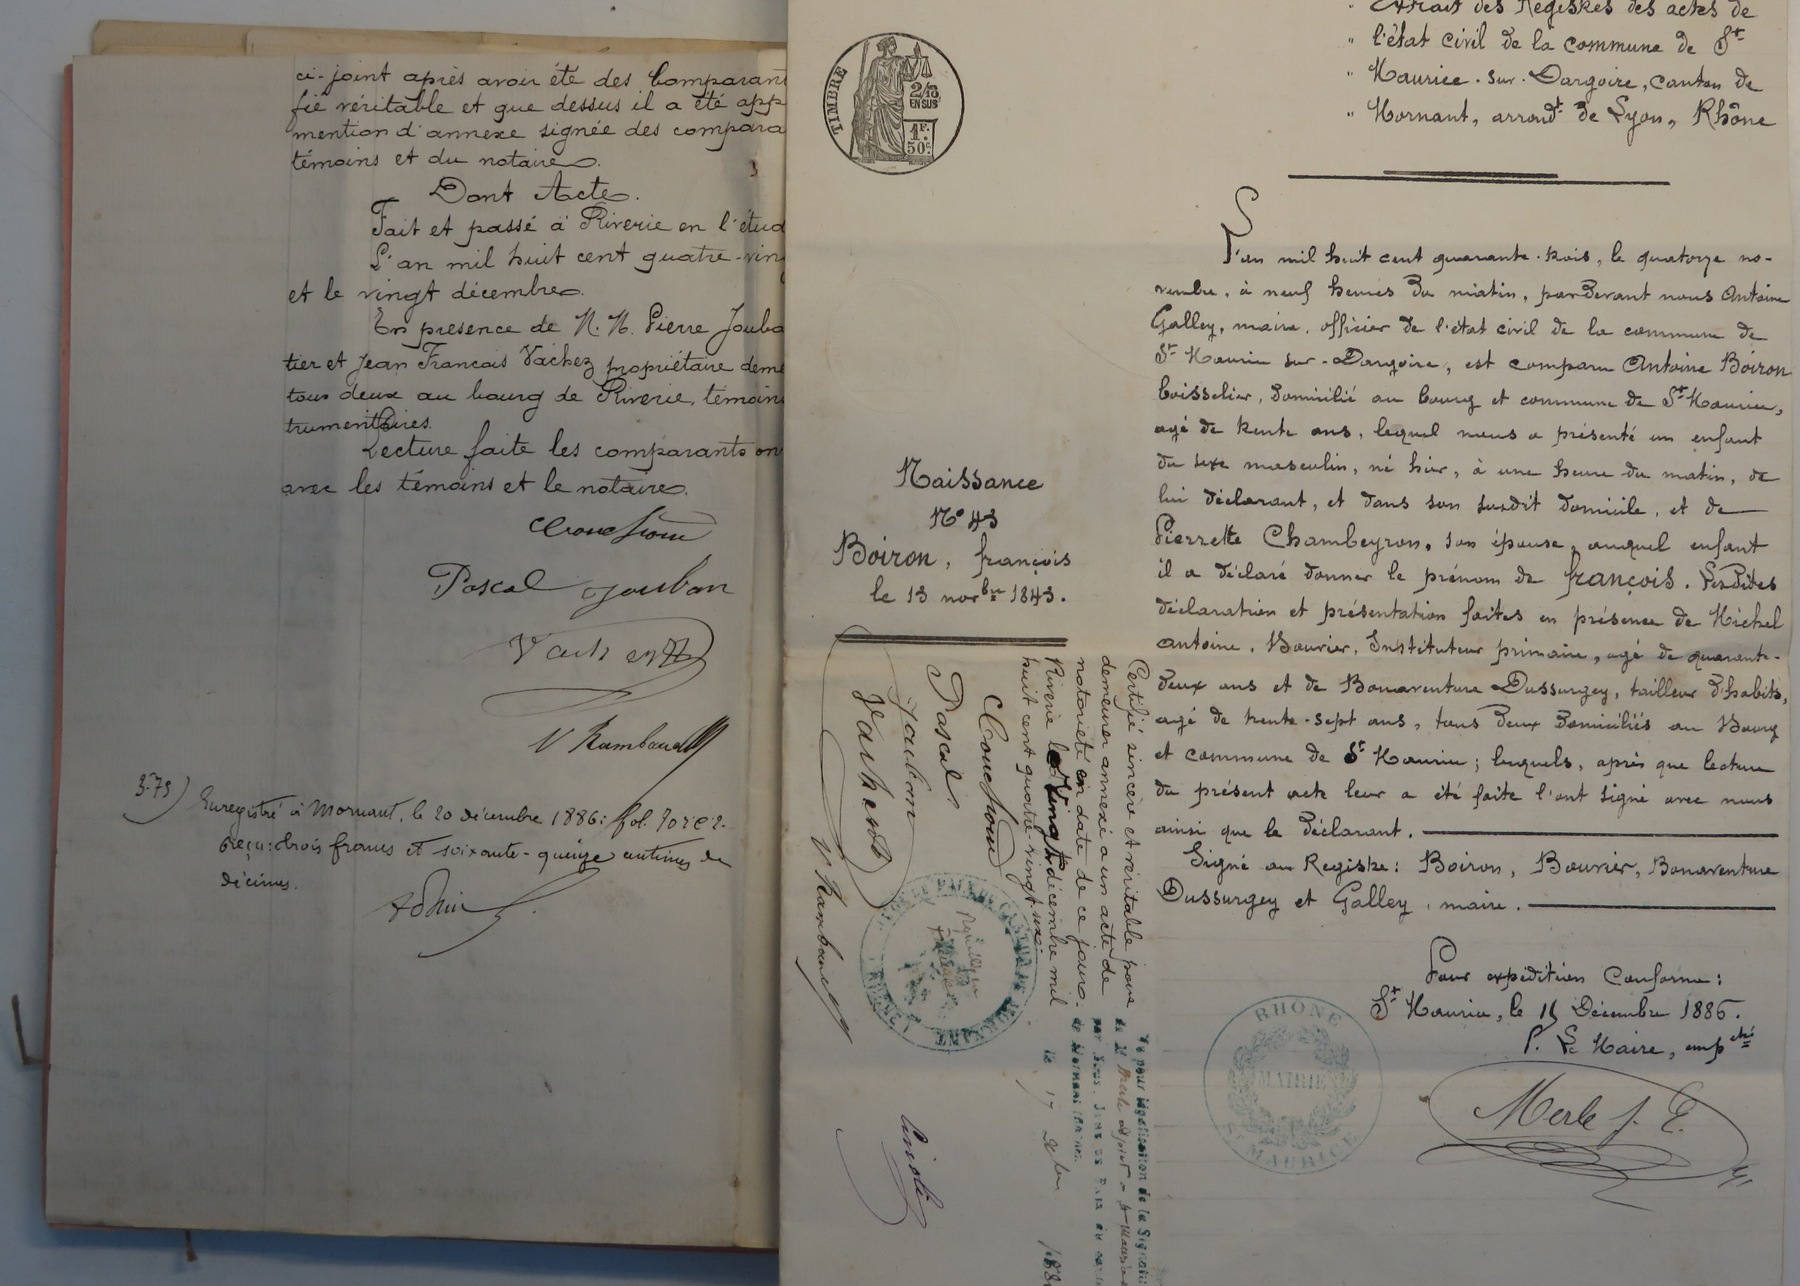 ci-joint après avoir été des comparan
fié véritable et que dessus il a été app
mention d'annexe signée des compara
témoins et du notaire.
Dont Acte.
Fait et passé à Riverie en l'étud
L'an mil huit cent quatre-ving
et le vingt décembre.
En présence de M. M. Pierre Joub
tier et Jean François Vachez propriétaire deme
tous deux au bourg de Riverie, témoin
trumentaires.
Lecture faite les comparants on
avec les témoins et le notaire.
Pascal Jouban
V Rambaud
3.75) Enregistré à Mornant, le 20 décembre 1886: fol. 70
Reçu: trois francs et soixante-quinze centimes de
décimes.
TIMBRE
2/10
EN SUS
1F.
50c.
Extrait des Registres des actes de
" l'état civil de la commune de St
" Maurice-sur-Dargoire, canton de
" Mornant, arrondt de Lyon, Rhône
L'an mil huit cent quarante-trois, le quatorze no-
vembre, à neuf heures du matin, pardevant nous Antoine
Galley, maire, officier de l'état civil de la commune de
St Maurice sur-Dargoire, est comparu Antoine Boiron
boisselier, domicilié au bourg et commune de St Maurice,
agé de trente ans, lequel nous a présenté un enfant
du sexe masculin, né hier, à une heure du matin, de
lui déclarant, et dans son susdit domicile, et de
Pierrette Chambeyron, son épouse, auquel enfant
il a déclaré donner le prénom de françois. Lesdites
déclaration et présentation faites en présence de Michel
antoine, Bouvier, Instituteur primaire, agé de quarante-
deux ans et de Bonaventure Dussurgey, tailleur d'habits,
agé de trente-sept ans, tous deux domiciliés au Bourg
et commune de St Maurice; lesquels, après que lecture
du présent acte leur a été faite l'ont signé avec nous
ainsi que le déclarant.
Signé au Registre: Boiron, Bouvier, Bonaventure
Dussurgey et Galley, maire.
Pour expédition conforme:
St Maurice, le 15 Décembre 1886.
P. Le Maire, empché
Merle J. E.
RHÔNE
MAIRIE
ST MAURICE
Naissance
No 43
Boiron, françois
le 13 novbre 1843.
Certifié sincère et véritable pour
demeurer annexé a un acte de
notoriété en date de ce jour.
Riverie le Vingt décembre mil
huit cent quatre vingt six
Pascal.
Joubon
V Rambaud
Vu pour légalisation de la Signatu
de M Merle
par Nous, Juge de Paix du
de Mornant (Rhône).
le 17